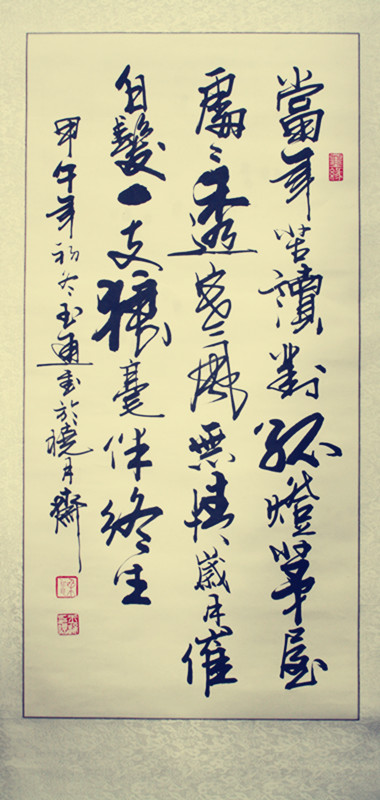 當年苦讀對孤燈茅屋
處〻透寒風無情歲月催
白髮一支狼毫伴終生
甲午年初冬玉通書於曉月齋